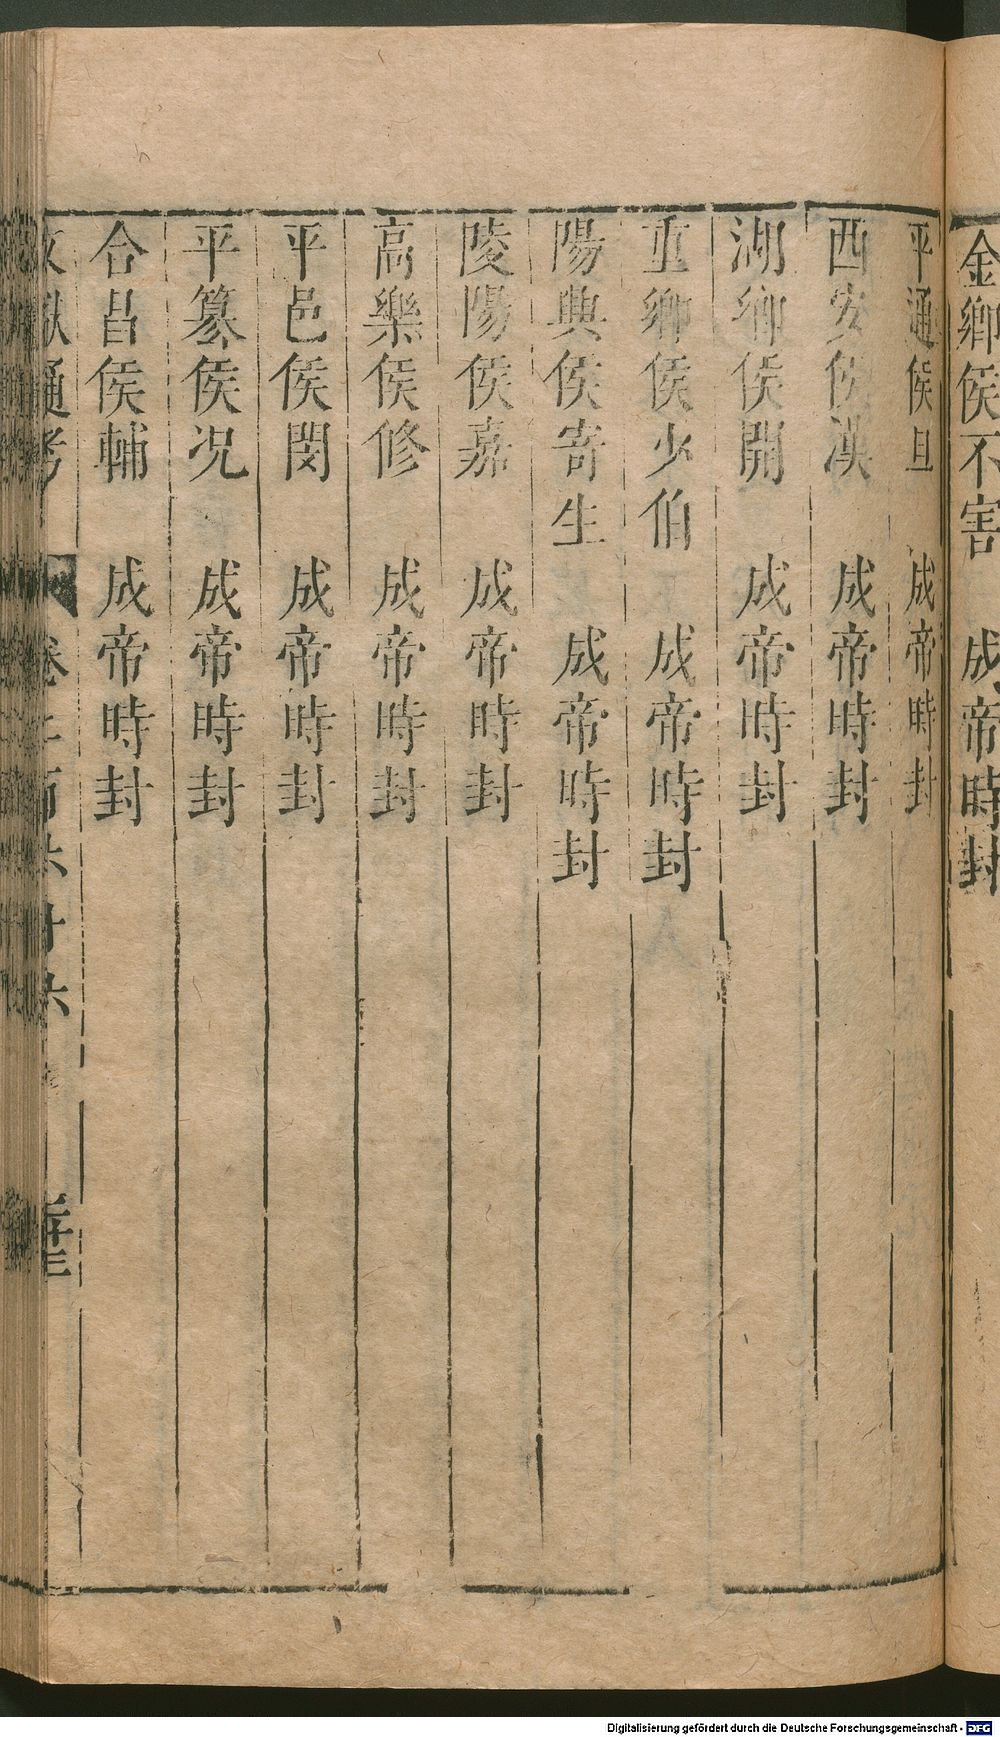 金鄉侯不害　成帝時封
平通侯且　成帝時封
西安侯漢　成帝時封
湖鄉侯開　成帝時封
重鄉侯少伯　成帝時封
陽興侯寄生　成帝時封
陵陽侯嘉　成帝時封
高樂侯修　成帝時封
平邑侯閔　成帝時封
平纂侯况　成帝時封
合昌侯輔　成帝時封
文獻通考　卷二百六十六
Digitalisierung gefördert durch die Deutsche Forschungsgemeinschaft - DFG